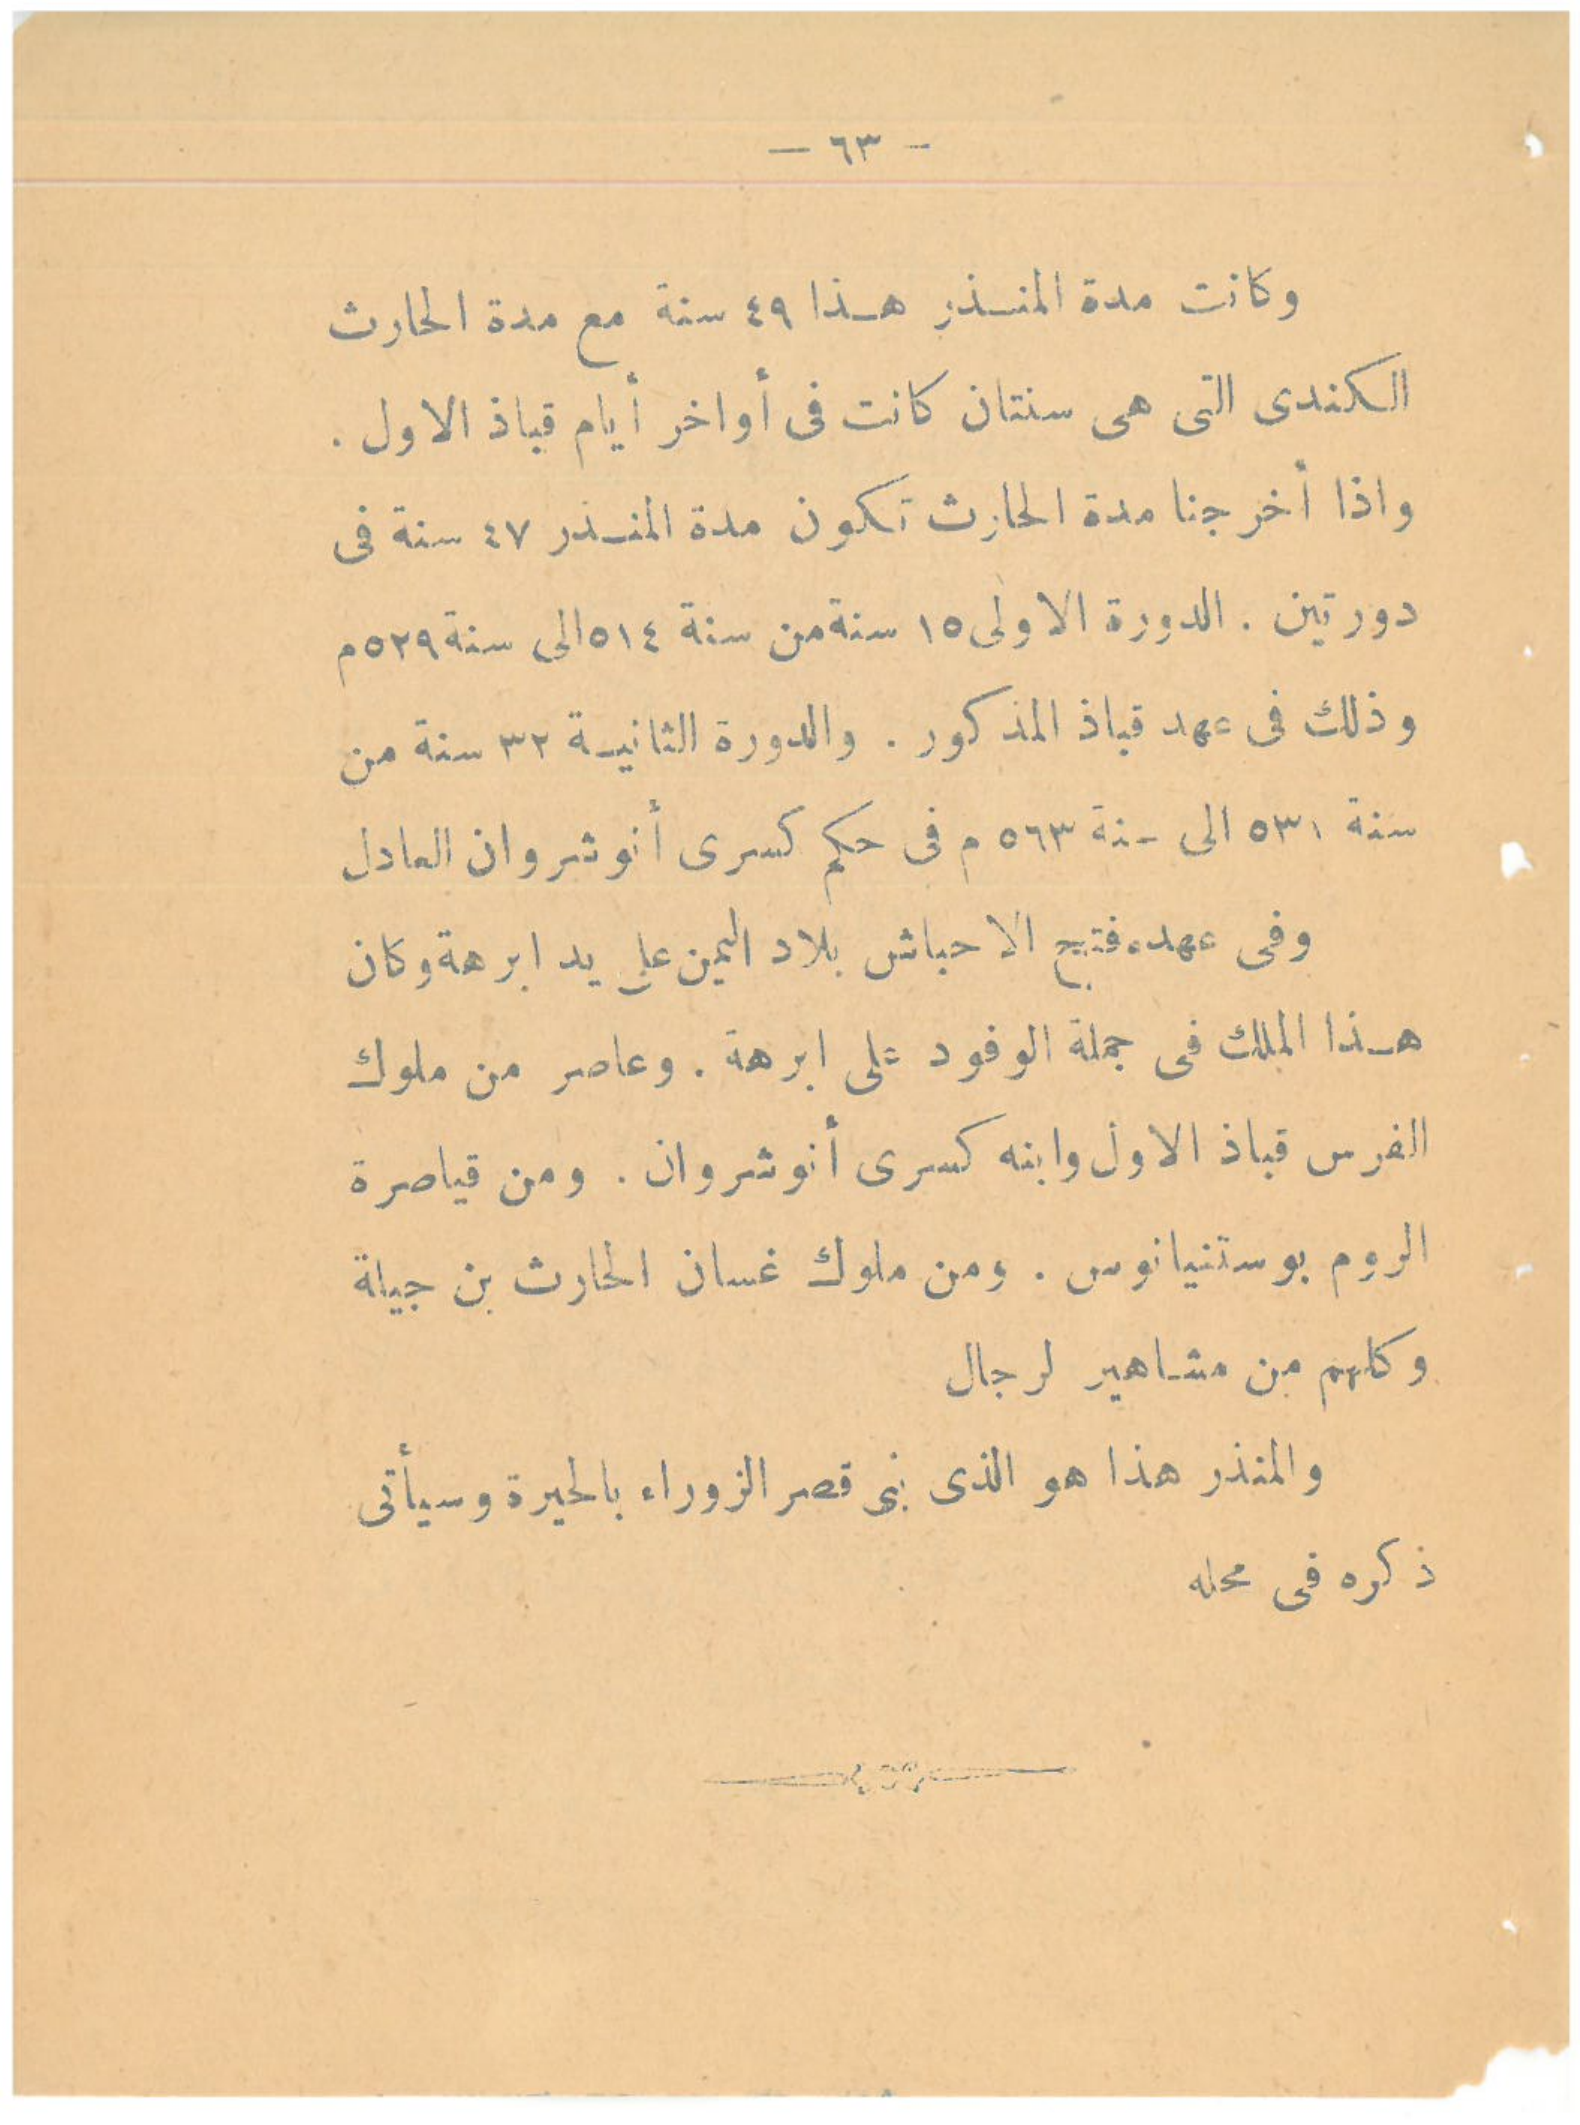 — ٦٣ —
وكانت مدة المنـذر هـذا ٤٩ سنة مع مدة الحارث
الكندى التى هى سنتان كانت فى أواخر أيام قباذ الاول .
واذا أخرجنا مدة الحارث تكون مدة المنـذر ٤٧ سنة فى
دورتين . الدورة الاولى ١٥ سنة من سنة ٥١٤ الى سنة ٥٢٩ م
وذلك فى عهد قباذ المذكور . والدورة الثانيـة ٣٢ سنة من
سنة ٥٣١ الى سنة ٥٦٣ م فى حكم كسرى أنوشروان العادل
وفى عهده فتح الاحباش بلاد اليمن على يد ابرهة وكان
هـذا الملك فى جملة الوفود على ابرهة . وعاصر من ملوك
الفرس قباذ الاول وابنه كسرى أنوشروان . ومن قياصرة
الروم بوستنيانوس . ومن ملوك غسان الحارث بن جبلة
وكلهم من مشـاهير لرجال
والمنذر هذا هو الذى بنى قصر الزوراء بالحيرة وسيأتى
ذكره فى محله